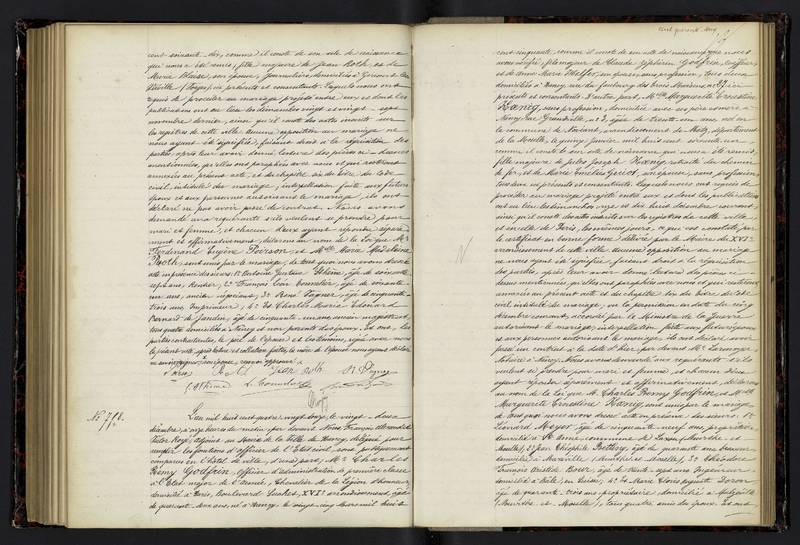 cent soixante-dix, comme il conste de son acte de naissance
qui nous a été remis, fille majeure de Jean Roth et de
Marie Blaise, son épouse, journaliers, domiciliés à
(Vosges), ici présents et consentants. Lesquels nous ont
requis de procéder au mariage projeté entre eux et dont les
publications ont eu lieu les dimanches vingt et vingt-sept
novembre dernier, ainsi qu'il conste des actes inscrits sur
les registres de cette ville. Aucune opposition au mariage ne
nous ayant été signifiée, faisant droit à la réquisition des
parties, après leur avoir donné lecture des pièces ci-dessus
mentionnées, qu'elles ont paraphées avec nous et qui resteront
annexées au présent acte, et du chapitre six du titre du Code
civil, intitulé du mariage, interpellation faite aux futurs
époux et aux personnes autorisant le mariage, ils ont
déclaré ne pas avoir passé de contrat. Nous avons
demandé aux requérants s'ils veulent se prendre pour
mari et femme, et chacun d'eux ayant répondu séparé-
ment et affirmativement, déclarons au nom de la loi que Mr
Ferdinand Eugène Poirson, et Mlle Marie Madeleine
Roth, sont unis par le mariage, de tout quoi nous avons dressé
acte en présence des sieurs: 1º Antoine Gustave Thirion, âgé de soixante-
sept ans, Rentier, 2º François Léon Cournault, âgé de soixante-
un ans, ancien négociant, 3º René Wagner, âgé de cinquante-
trois ans, Imprimeur, 4º Charles Marie Edmond
Bernard de Jandin, âgé de cinquante-un ans, ancien magistrat,
tous quatre domiciliés à Nancy et non parents des époux. Et ont, les
parties contractantes, le père de l'épouse et les témoins, signé avec nous
le présent acte, après lecture et collation faites, la mère de l'épouse nous ayant déclaré
Jean Roth
Nº 718.
L'an mil huit cent quatre-vingt-onze, le vingt-deux
décembre, à onze heures du matin, par devant Nous, François Alexandre
Victor Noye, Adjoint au Maire de la Ville de Nancy, délégué pour
remplir les fonctions d'officier de l'Etat civil, sont publiquement
comparus en l'hôtel de ville, d'une part, Mr Charles
Remy Godfrin, Officier d'administration de première classe
à l'Etat major de l'armée, Chevalier de la Légion d'honneur,
domicilié à Paris, Boulevard Suchet, XVIe arrondissement, âgé
de quarante-deux ans, né à Nancy, le vingt-cinq mars mil huit
cent cinquante, comme il conste de son acte de naissance que nous
avons vérifié, fils majeur de Claude Godfrin,
et de Anne Marie son épouse, sans profession, tous deux
domiciliés à Nancy, rue du faubourg des trois Maisons, nº 37, ici
présents et consentants. D'autre part, Mlle Marguerite Ernestine
Hanig, sans profession, domiciliée avec ses père et mère à
Nancy, rue Grandville, nº 2, âgée de trente-un ans, née en
la commune de Novéant, arrondissement de Metz, département
de la Moselle, le premier janvier mil huit cent soixante-un,
comme il conste de son acte de naissance que nous a été remis,
fille majeure de Jules Joseph Hanig, retraité du chemin
de fer, et de Marie Emélie son épouse, sans profession,
tous deux ici présents et consentants. Lesquels nous ont requis de
procéder au mariage projeté entre eux, et dont les publications
ont eu lieu les dimanches onze et dix-huit décembre courant,
ainsi qu'il conste des actes inscrits sur les registres de cette ville
et en celle de Paris, les mêmes jours, ce qui est constaté par
le certificat en bonne forme délivré par le Maire du XVIe
arrondissement de cette ville. Aucune opposition au mariage
ne nous ayant été signifiée, faisant droit à la réquisition
des parties, après leur avoir donné lecture des pièces ci-
dessus mentionnées, qu'elles ont paraphées avec nous et qui resteront
annexées au présent acte et du chapitre six du titre du Code
civil intitulé du mariage, vu la permission en date du cinq
décembre courant, accordée par le Ministre de la Guerre
autorisant le mariage, interpellation faite aux futurs époux
et aux personnes autorisant le mariage, ils ont déclaré avoir
passé un contrat à la date d'hier par devant Me
Notaire à Nancy. Nous avons demandé aux requérants s'ils
veulent se prendre pour mari et femme, et chacun d'eux
ayant répondu séparément et affirmativement, déclarons
au nom de la loi que Mr Charles Remy Godfrin et Mlle
Marguerite Ernestine Hanig, sont unis par le mariage,
de tout quoi nous avons dressé acte en présence des sieurs: 1º
Léonard Meyer, âgé de cinquante-neuf ans, propriétaire,
domicilié à Ste Anne, commune de Laxou (Meurthe et
Moselle), 2º Jean Théophile âgé de quarante ans,
domicilié à Maxéville (Meurthe et Moselle), 3º Théodore
François Aristide Bour, âgé de trente-sept ans, Ingénieur,
domicilié à Bâle, en Suisse, 4º Marie Clovis Auguste
âgé de quarante-trois ans, propriétaire, domicilié à
(Meurthe et Moselle), tous quatre amis des époux. Et ont